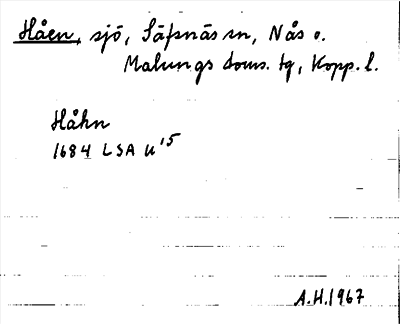 Håen, sjö, Säfsnäs sn, Nås o.
Malungs doms. tg, Kopp. l.
Håhn
1684 LSA U'5
A.H.1967